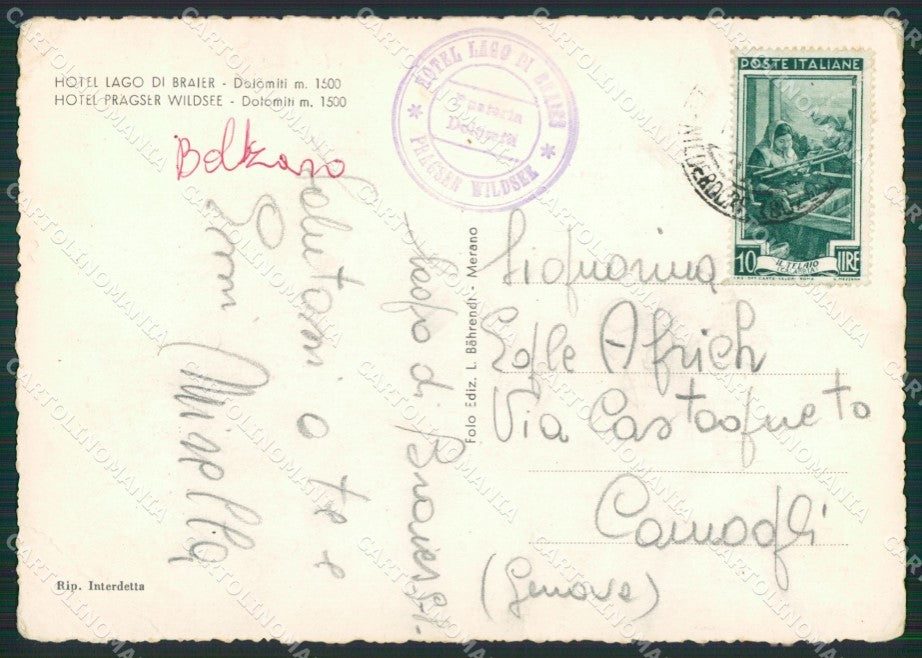 HOTEL LAGO DI BRAIER - Dolomiti m. 1500
HOTEL PRAGSER WILDSEE - Dolomiti m. 1500
Bolzano
HOTEL LAGO DI BRAIES
PRAGSER WILDSEE
POSTE ITALIANE
10 LIRE
IL TELAIO
Lago di Braies
Salutoni a te e
Mirella
Foto Ediz. L. Bährendt - Merano
Signorina
Egle
Via Castagneto
Camogli
(Genova)
Rip. Interdetta
CARTOLINOMANIA